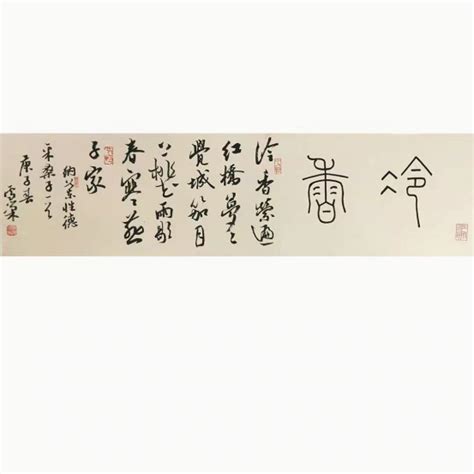 冷香
冷香縈遍
紅橋夢々
覺城笳月
上桃花雨歇
春寒燕
子家
納蘭性德
采桑子一首
庚子春